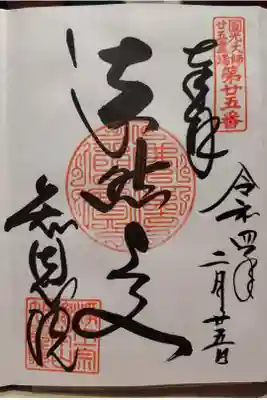 圓光大師
廿五霊場
第廿五番
奉拝
令和四年
二月廿五日
法然上人
知恩院